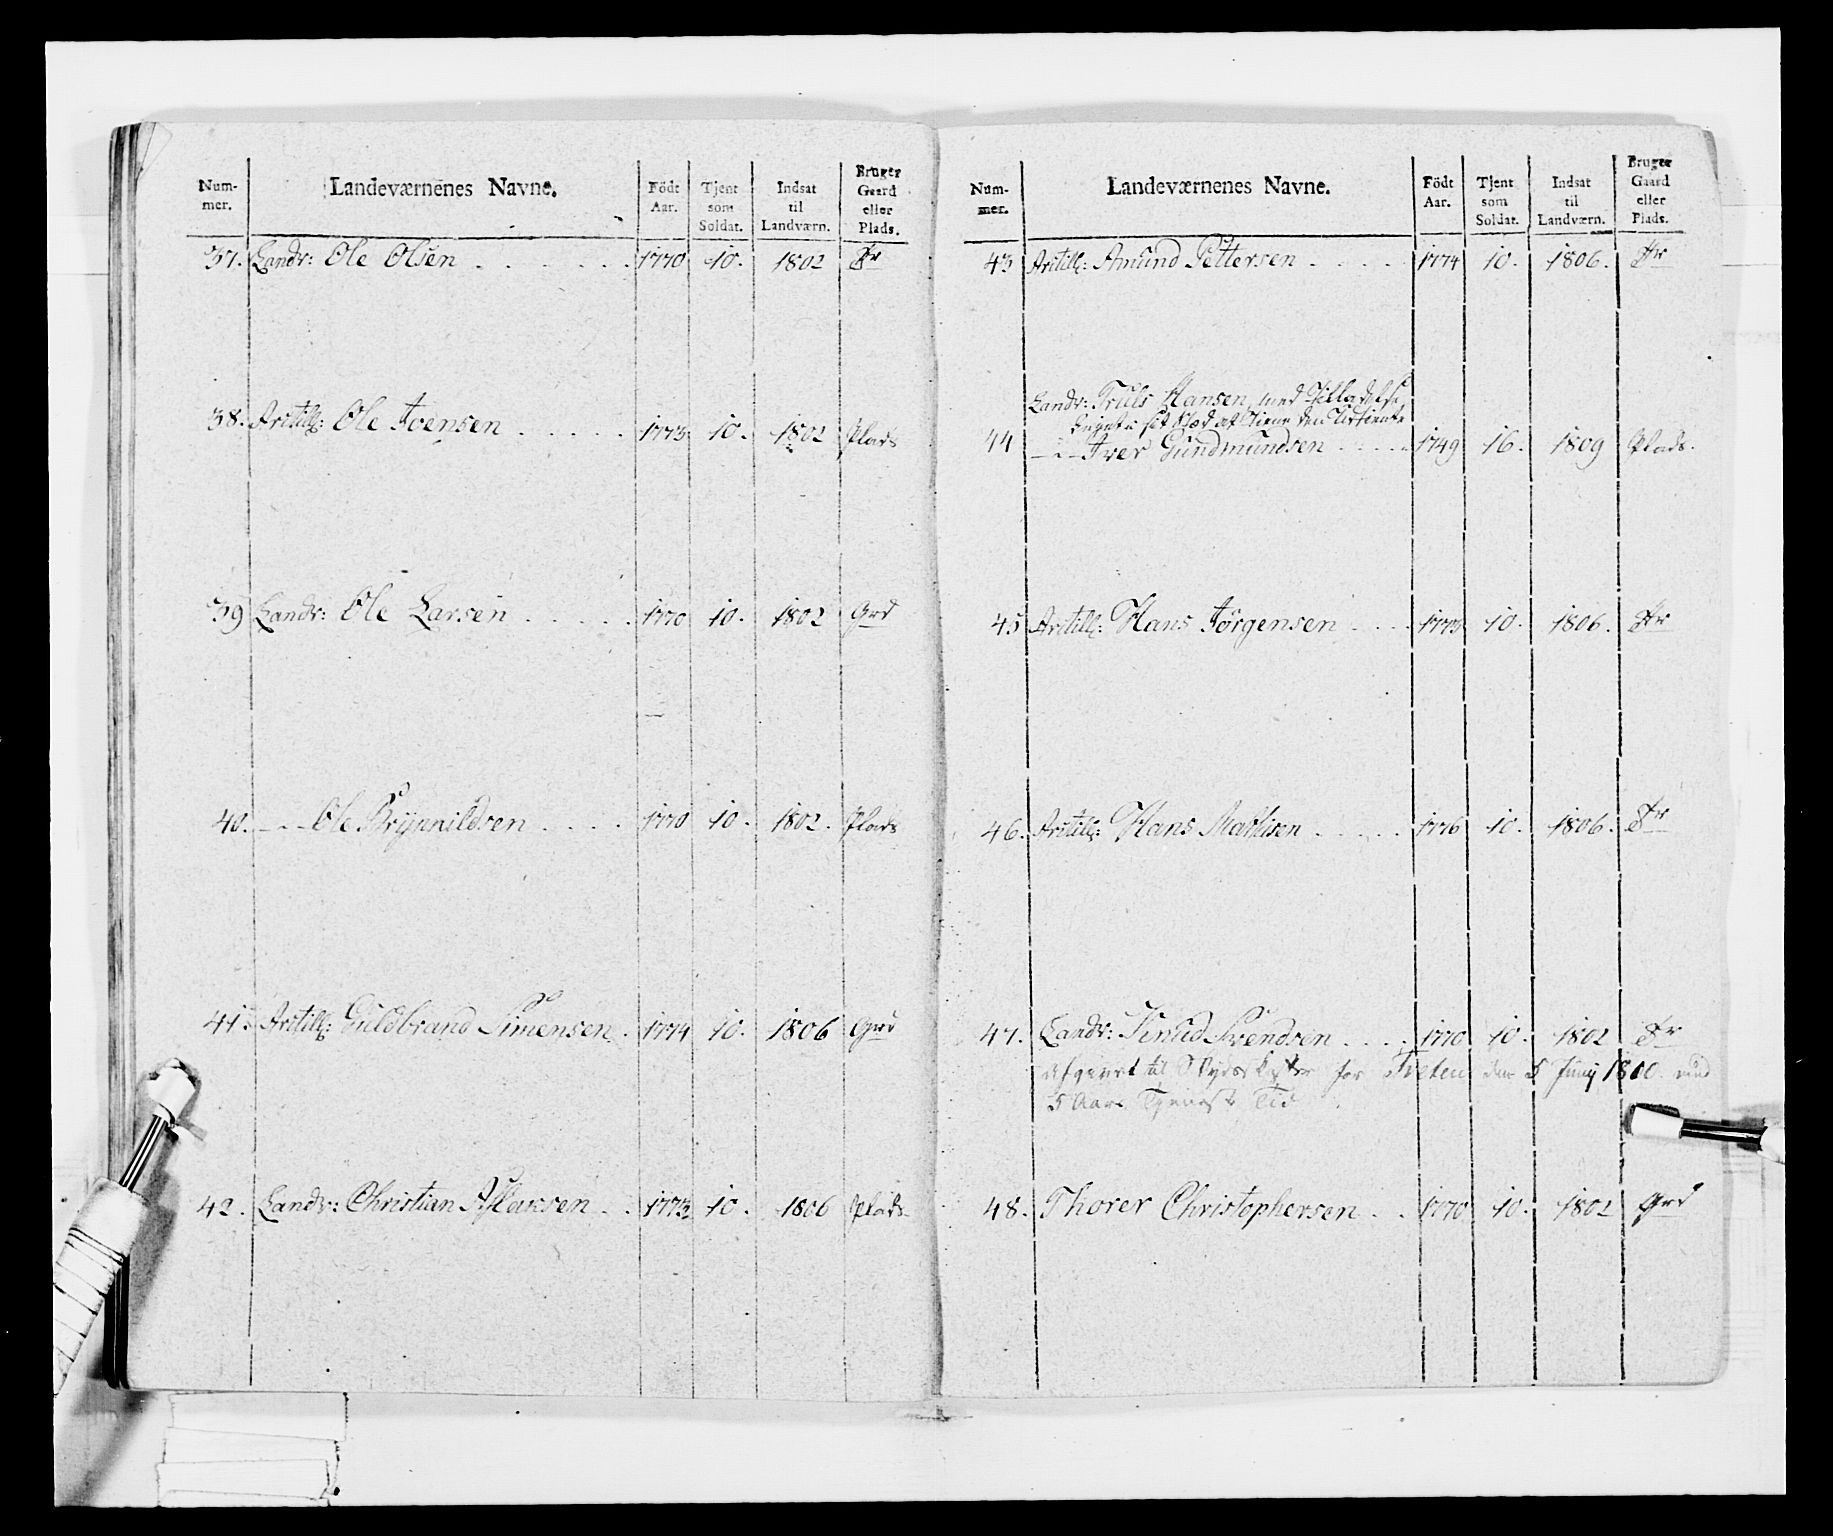 Num-
mer.
Landeværnenes Navne.
Födt
Aar.
Tjent
som
Soldat.
Indsat
til
Landværn.
Bruger
Gaard
eller
Plads.
37. Landv: Ole Olsen . . . . . . 1770 10. 1802 Fr
38. Artill: Ole Joensen . . . . . 1773 10. 1802 Plads
39 Landv: Ole Larsen . . . . . 1770 10. 1802 Grd
40. —〃— Ole Brÿnnildsen . . . . 1770 10. 1802. Plads
41. Artill: Guldbrand Simensen . 1774 10. 1806 Grd
42. Landv: Christian Hansen . . 1773 10. 1806 Plads
Num-
mer.
Landeværnenes Navne.
Födt
Aar.
Tjent
som
Soldat.
Indsat
til
Landværn.
Bruger
Gaard
eller
Plads.
43 Artill: Amund Pettersen . . . . . 1774 10. 1806. Fr
Landv: Truls Hansen, med Tilladelse
sit Sted at Tiene den
44 —〃— Iver Gundmundsen . . . . 1749 16. 1809 Plads.
45 Artill: Hans Jörgensen . . . . 1773 10. 1806. Fr
46. Artill: Hans Mathisen . . . . . 1776 10. 1806. Fr
47. Landv: Knud Svendsen . . . . 1770 10. 1802 Fr
afgivet til for Tveten den 5 Junij 1810 med
5 Aars Tjeneste Tid
48. Thorer Christophersen . . 1770 10. 1802 Grd